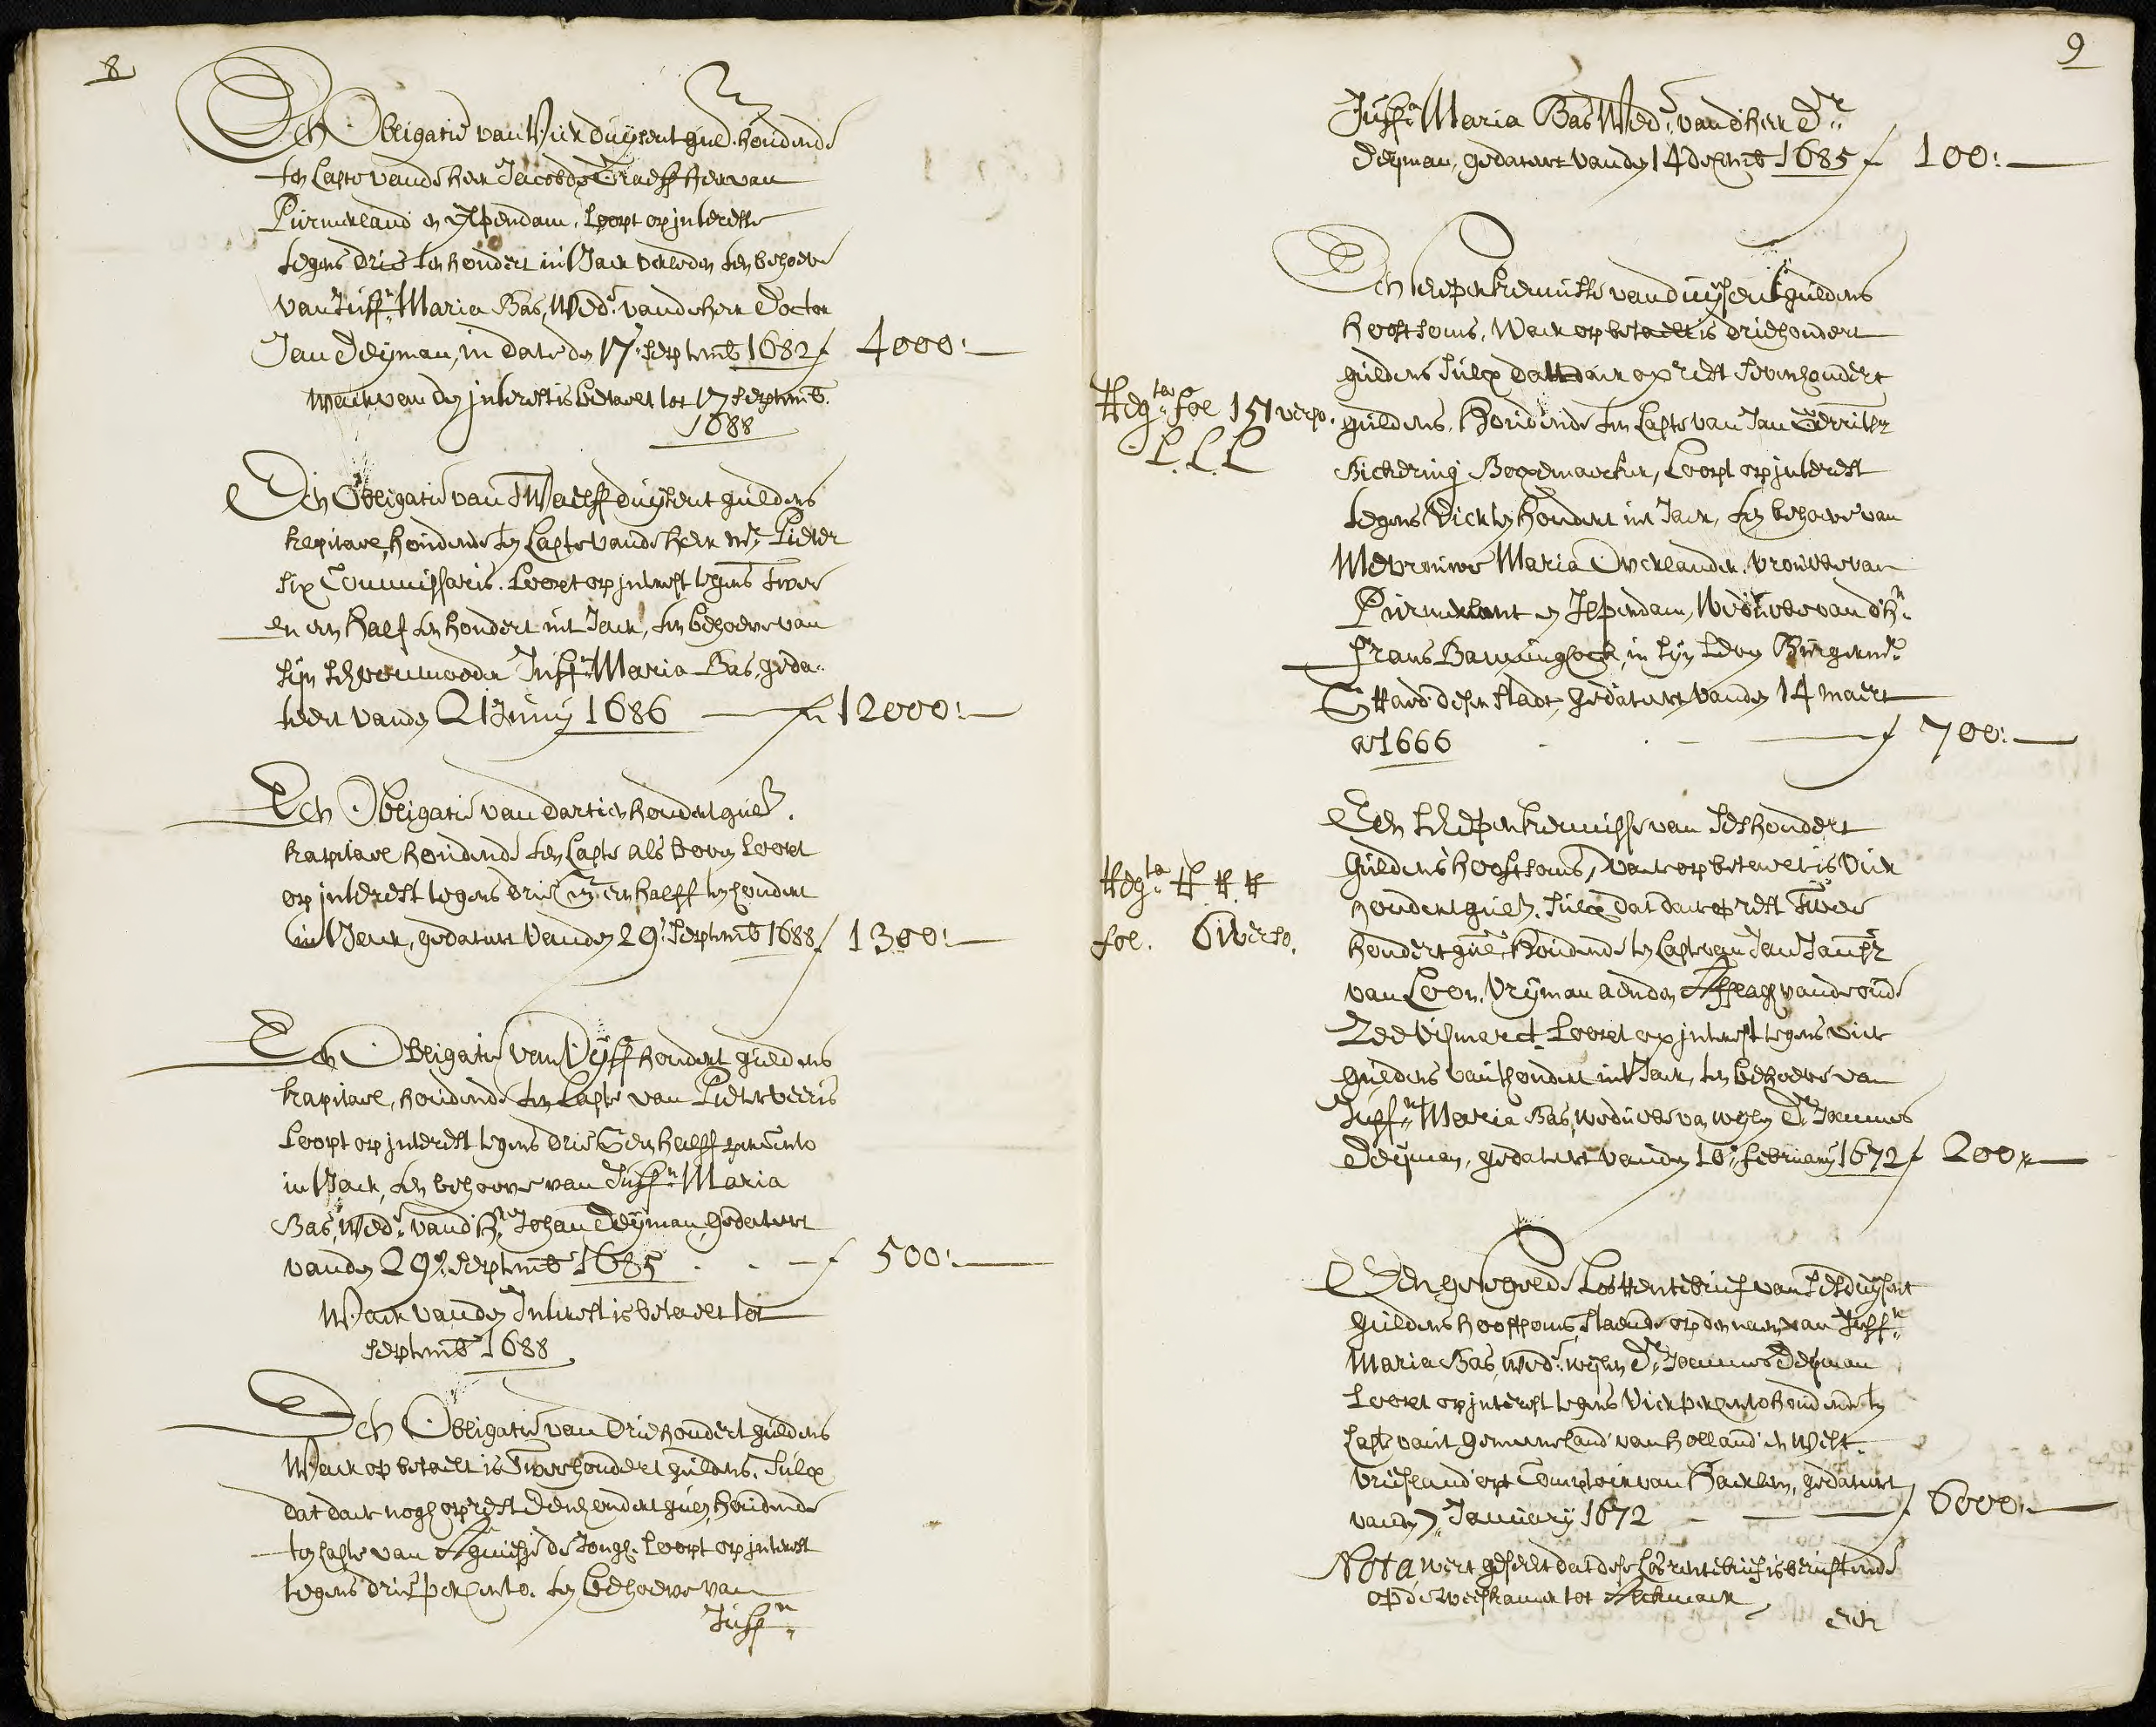 8
Een Obligatie van Vier duijsent guld. houdende
ten Laste vande heer Jacob de Graeff heer van
Purmerland en Ilpendam, Loopt op interesse
tegens drie ten hondert int Jaer verleden ten behoeve
van Juffr. Maria Bas, Wede. vande heer Doctor
Jan Deijman, in date den 17. septemb. 1682 f 4000:—
waer van den interest is betaelt tot 17 septemb.
1688
Een Obligatie van Twaelff duijsent guldens
kapitael, houdende ten Laste vande heer mr. Pieter
Six Commissaris. Loopt op interest tegens twee
en een half ten hondert int Jaer, ten behoeve van
sijn schoonmoeder Juffr. Maria Bas, geda-
teert vanden 21 Junij 1686 — f 12000:—
Een Obligatie van dartien hondert guld.
kapitael houdende ten Laste als boven Loopt
op interest tegens drie en een halff ten hondert
int Jaer, gedateert vanden 29. septemb 1688 f 1300:—
Een Obligatie van Vijff hondert guldens
kapitael, houdende ten Laste van Pieter
Loopt op interest tegens drie Een halff per Cento
int Jaer, ten behoeve van Juffr. Maria
Bas, Wede. vand' Hr. Johan Deijman, gedateert
vanden 29. septemb 1685 . . — f 500:—
Waer vanden Interest is betaelt tot
septemb 1688
Een Obligatie van driehondert guldens
Waer op betaelt is Twee hondert guldens. sulx
dat daer nogh op rest Een hondert guld, houdende
ten laste van de Jongh. Loopt op interest
tegens drie per Cento. ten behoeve van
Juffr.
9
Juffr. Maria Bas Wede. vand' heer Dr.
Deijman, gedateert vanden 14 decemb 1685 f 100:—
Een schepenkennisse van duijsent guldens
hooftsoms, Waer op betaelt is driehondert
guldens sulx dat daer op rest sevenhondert
Regta. fol 151 verso. guldens, houdende ten Laste van Jan Gerritsz
L.L.L
Bickering Boxemaecker, Loopt op interest
tegens Vier ten hondert int Jaer, ten behoeve van
Mevrouwe Maria Overlander, vrouwe van
Purmerlant en Ilpendam, Weduwe van d'hr.
Frans Banningh Cock, in sijn leven Burgermr.
Raed deser stadt, gedateert vanden 14 maert
ao 1666 . — f 700:—
Een schepenkennisse van seshondert
guldens hooftsoms, waer op betaelt is Vier
Regta.
hondert guld. sulx dat daer op rest Twee
fol. 61 verso.
hondert guld. Houdende ten Laste van Jan Jansz
van Loon, Vrijman aenden Afslagh vande oude
Zee Vismarct. Loopt op interest tegens vier
guldens van hondert int Jaer, ten behoeve van
Juffr. Maria Bas, weduwe van wijlen Dr. Joannes
Deijman, gedateert vanden 16. february 1672 f 200:—
Een gezegelde Losrentebrief van sesduijsent
guldens hooftsoms, staende op den naem van Juffr.
Maria Bas, Wede. wijlen Dr. Joannes Deijman
Loopt op interest tegens Vier per cento houdende ten
Laste vant gemeene Land van Holland en West
vriesland opt Comptoir van Haerlem, gedateert
vanden 7. January 1672 — — — f 6000:—
Nota wert geseit dat dese Losrentebrief is berustende
op de weeskamer tot Alckmaer
Een